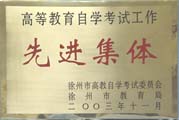 高等教育自学考试工作
先进集体
徐州市高教自学考试委员会
徐州市教育局
二〇〇三年十一月